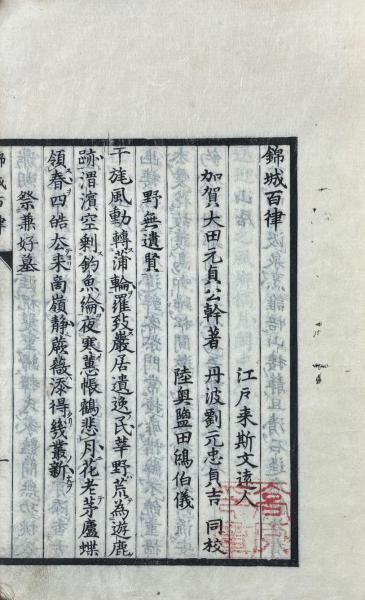 錦城百律
江戸来斯文遠人
加賀大田元貞公幹著 丹波劉元忠貞吉 同校
陸奥鹽田鴟伯儀
野無遺賢
干旄風動轉蒲輪羅致巖居遺逸民莘野荒為遊鹿
跡渭濱空剩釣魚綸夜寒蕙帳鶴悲月花老茅廬蝶
領春四皓厺来商嶺靜蕨薇添得幾叢新
祭兼好墓
錦城百律
一